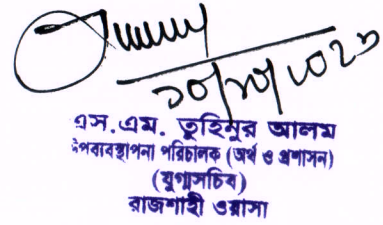 এস.এম. তুহিনুর আলম
উপব্যবস্থাপনা পরিচালক (অর্থ ও প্রশাসন)
(যুগ্মসচিব)
রাজশাহী ওয়াসা